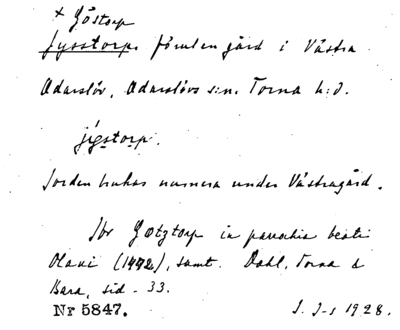 + Göstorp
Jysstorp. Förulen gård i Västra
Odarslöv, Odarslövs s:n. Torna h:d.
jigstorp.
Jorden brukas numera under Västragård.
Jfr Gotztorp in parochia beati
Olavi (1492), samt. Dahl, Torna o
Bara, sid. 33.
Nr 5847.
1928.